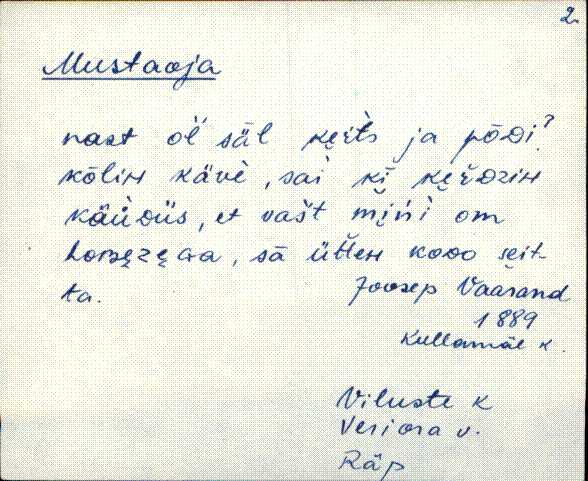 2.
Mustaoja
nast ol' säl ke̬ŕtś ja pōᴅi?
kōliʜ kävè, sai ki ke̬ŕᴅziʜ
käüᴅüs, et vašt mińi om
hoʙe̬ze̬ɢa, sā ütteʜ kooᴅ seit-
ta.
Joosep Vaarand
1889
Kullamäe k.
Viluste k
Veriora v.
Räp